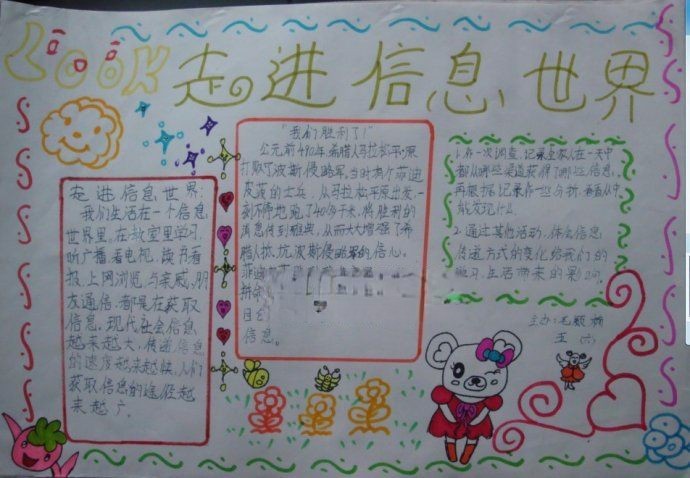 LOOK
走进信息世界
走进信息世界:
我们生活在一个信息
世界里。在教室里学习、
听广播、看电视、读书看
报、上网浏览、与亲戚、朋
友通信、都是在获取
信息。现代社会信息
越来越大、传递信息
的速度越来越快、人们
获取信息的途径越
来越广
"我们胜利了!"
公元前490年,希腊人马拉松平原
打败了波斯侵略军,当时有个
皮茨的士兵,从马拉松平原出发,一
刻不停地跑了40多千米,将胜利的
消息传到雅典,从而大大增强了希
腊人抵抗波斯侵略军的信心。
信息。
1.办一次调查,记录全家人在一天中
都从哪些渠道获得了哪些信息,
再根据记录作一些分析,看看从中
能发现什么
2.通过其他活动,体会信息
传递方式的变化给我们的
学习、生活带来的影响。
主办:毛颖
五(六)